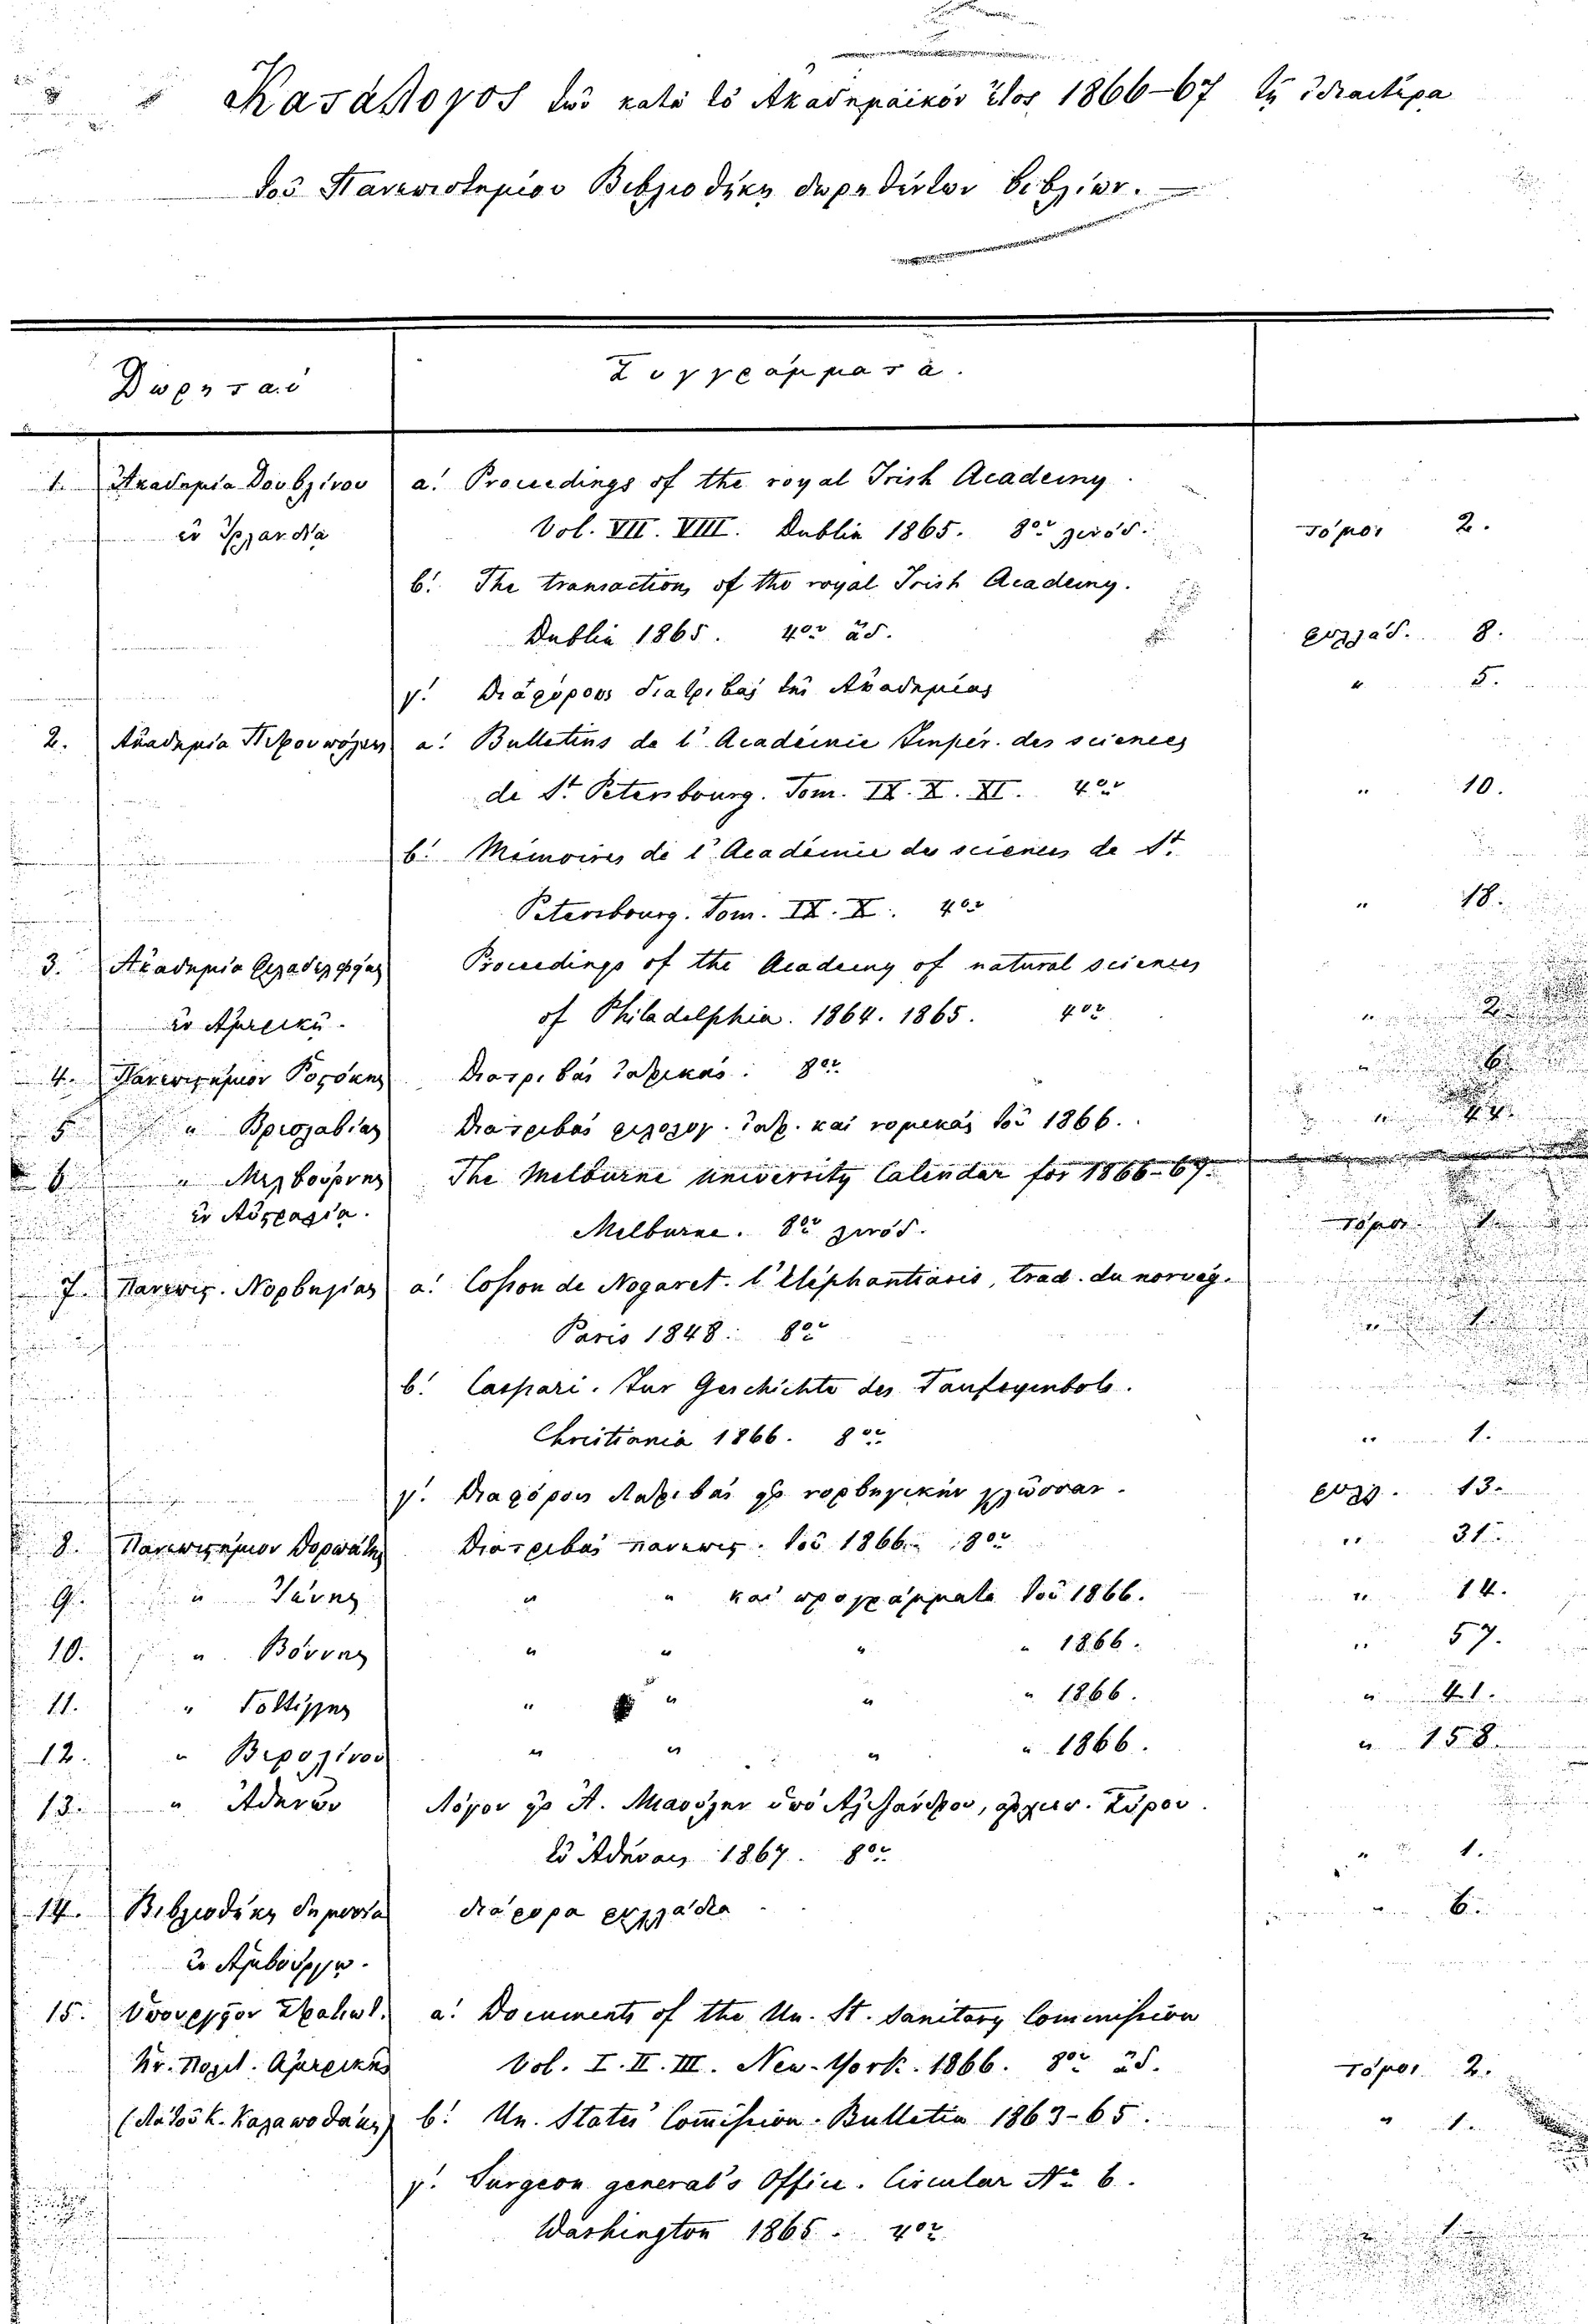 Κατάλογος τῶν κατὰ τὸ Ἀκαδημαϊκὸν ἔτος 1866–67 τῇ
τοῦ Πανεπιστημίου Βιβλιοθήκῃ δωρηθέντων βιβλίων.
Δωρηταί
Συγγράμματα.
1. Ἀκαδημία Δουβλίνου α'. Proceedings of the royal Irish Academy.
ἐν Ἰρλανδίᾳ Vol. VII. VIII. Dublin 1865. 8ον δεδ. Τόμοι 2.
β'. The transactions of the royal Irish Academy.
Dublin 1865. 4ον ἄδ. φυλλάδ. 8.
γ'. Διαφόρους διατριβὰς τῆς Ἀκαδημίας " 5.
2. Ἀκαδημία Πετρουπόλεως α'. Bulletins de l'Académie Impér. des sciences
de St. Petersbourg. Tom. IX. X. XI. 4ον " 10.
β'. Mémoires de l'Académie des sciences de St.
Petersbourg. Tom. IX. X. 4ον " 18.
3. Ἀκαδημία Φιλαδελφίας Proceedings of the Academy of natural sciences
ἐν Ἀμερικῇ. of Philadelphia. 1864. 1865. 4ον " 2.
4. Πανεπιστήμιον Ῥοστόκης Διατριβὰς ἰατρικάς. 8ον " 6.
5 " Βρεσλαβίας Διατριβὰς φιλολογ. ἰατρ. καὶ νομικὰς τοῦ 1866.
6 " Μελβούρνης The Melburne university Calendar for 1866–67.
ἐν Αὐστραλίᾳ. Melburne. 8ον δεδ. Τόμος 1.
7. Πανεπις. Νορβηγίας α'. Cosson de Nogaret. l'Eléphantiasis, trad. du norvég.
Paris 1848. 8ον " 1.
β'. Caspari. Zur Geschichte des Taufsymbols.
Christiania 1866. 8ον " 1.
γ'. Διαφόρους διατριβὰς εἰς νορβηγικὴν γλῶσσαν. φυλλ. 13.
8. Πανεπιστήμιον Δορπάτης Διατριβὰς πανεπις. τοῦ 1866. 8ον " 31.
9. " Ἰένης " " καὶ προγράμματα τοῦ 1866. " 14.
10. " Βόννης " " " " 1866. " 57.
11. " Γοττίγγης " " " " 1866. " 41.
12. " Βερολίνου " " " " 1866. " 158.
13. " Ἀθηνῶν Λόγον εἰς Α. Μιαούλην ὑπὸ Ἀλεξάνδρου, ἀρχιεπ. Σύρου.
Ἐν Ἀθήναις 1867. 8ον " 1.
14. Βιβλιοθήκη δημοσία διάφορα φυλλάδια " 6.
ἐν Ἀμβούργῳ.
15. Ὑπουργεῖον Στρατιωτ. α'. Documents of the Un. St. Sanitary Commission
Ἡν. Πολιτ. Ἀμερικῆς Vol. I. II. III. New-York. 1866. 8ον ἄδ. Τόμοι 2.
(διὰ τοῦ κ. Καλαποδάκη) β'. Un. States Commission. Bulletin 1863–65. " 1.
γ'. Surgeon general's Office. Circular No 6.
Washington 1865. 4ον 1.